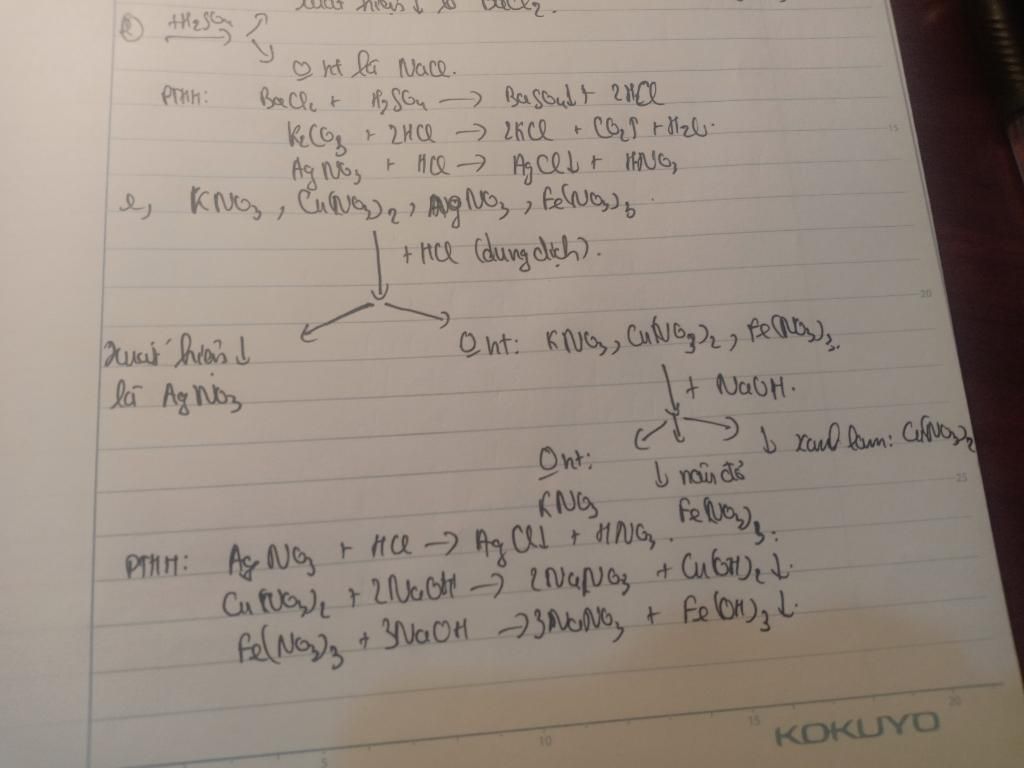 xuất hiện ↓ là BaCl2.
+H2SO4
O ht là NaCl.
PTHH: BaCl2 + H2SO4 → BaSO4↓ + 2HCl
K2CO3 + 2HCl → 2KCl + CO2↑ + H2O.
AgNO3 + HCl → AgCl↓ + HNO3
e, KNO3, Cu(NO3)2, AgNO3, Fe(NO3)3.
+ HCl (dung dịch).
Xuất hiện ↓
là AgNO3
O ht: KNO3, Cu(NO3)2, Fe(NO3)3.
+ NaOH.
O ht:
KNO3
↓ nâu đỏ
Fe(NO3)3.
↓ xanh lam: Cu(NO3)2
PTHH: AgNO3 + HCl → AgCl↓ + HNO3.
Cu(NO3)2 + 2NaOH → 2NaNO3 + Cu(OH)2↓.
Fe(NO3)3 + 3NaOH → 3NaNO3 + Fe(OH)3↓.
15
20
25
5
10
15
20
KOKUYO